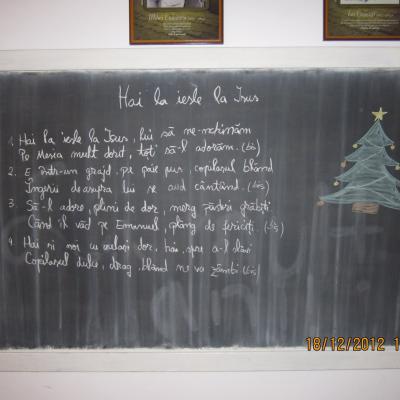 Mihai Eminescu
Ion Creangă
Hai la iesle la Isus
1. Hai la iesle la Isus, lui să ne-nchinăm
Pe Mesia mult dorit, toți să-l adorăm. (bis)
2. E într-un grajd, pe paie pus, copilașul blând
Îngerii deasupra lui se aud cântând. (bis)
3. Să-l adore, plini de dor, merg păstori grăbiți
Când îl văd pe Emanuel, plâng de fericiți. (bis)
4. Hai și noi cu același dor, hai, spre a-l slăvi
Copilașul dulce, drag, blând ne va zâmbi (bis)
18/12/2012 1